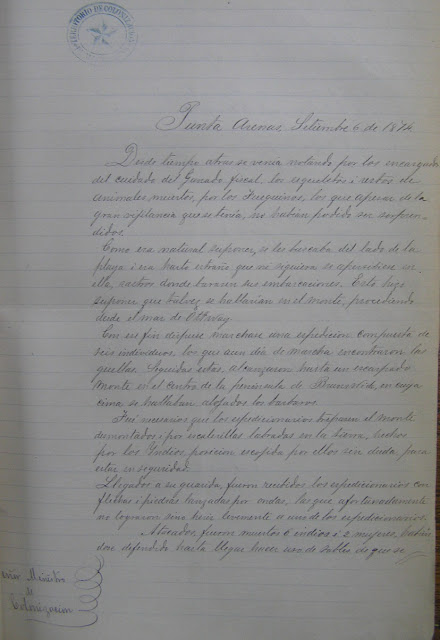 TERRITORIO DE COLONIZACION
Punta Arenas, Setiembre 6 de 1874
Desde tiempo atras se venia notando por los encargados
del cuidado del Ganado fiscal, los esqueletos i restos de
animales muertos, por los Fueguinos, los que apesar de la
gran vigilancia que se tenia, no habian podido ser sorpren-
didos.
Como era natural suponer, se les buscaba del lado de la
playa i era harto estraño que ni siquiera se apercibiese en
ella, rastros donde bararan sus embarcaciones. Esto hizo
suponer que talvez se hallarian en el monte, procediendo
desde el mar de Ottway.
Con ese fin dispuse marchase una espedicion compuesta de
seis individuos, los que a un dia de marcha encontraron las
huellas. Seguidas estas, alcanzaron hasta un escarpado
monte en el centro de la peninsula de Brunswick, en cuya
cima se hallaban alojados los barbaros.
Fué necesario que los espedicionarios trepasen el monte
desmontados i por escalerillas labradas en la tierra, hechas
por los Indios, posicion escojida por ellos sin duda, para
estar en seguridad.
Llegados a su guarida, fueron recibidos los espedicionarios con
flechas i piedras lanzadas por ondas, las que afortunadamente
no lograron sino herir levemente a uno de los espedicionarios.
Atacados, fueron muertos 6 indios i 2 mujeres, habién
dose defendido hasta llegar hacer uso de sables de que se
Señor Ministro
de
Colonizacion